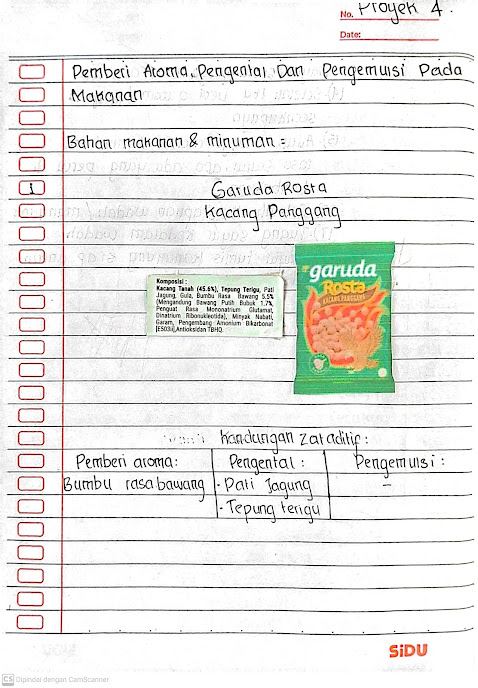 No. Proyek 4.
Date:
Pemberi Aroma, Pengental Dan Pengemulsi Pada
Makanan
Bahan makanan & minuman :
1
Garuda Rosta
Kacang Panggang
Komposisi :
Kacang Tanah (45.6%), Tepung Terigu, Pati
Jagung, Gula, Bumbu Rasa Bawang 5.5%
(Mengandung Bawang Putih Bubuk 1.7%,
Penguat Rasa Mononatrium Glutamat,
Dinatrium Ribonukleotida), Minyak Nabati,
Garam, Pengembang Amonium Bikarbonat
[E503ii], Antioksidan TBHQ.
garuda
Rosta
KACANG PANGGANG
Kandungan zat aditif :
Pemberi aroma:
Pengental :
Pengemulsi :
Bumbu rasa bawang
- Pati Jagung
-
- Tepung terigu
SiDU
CS Dipindai dengan CamScanner